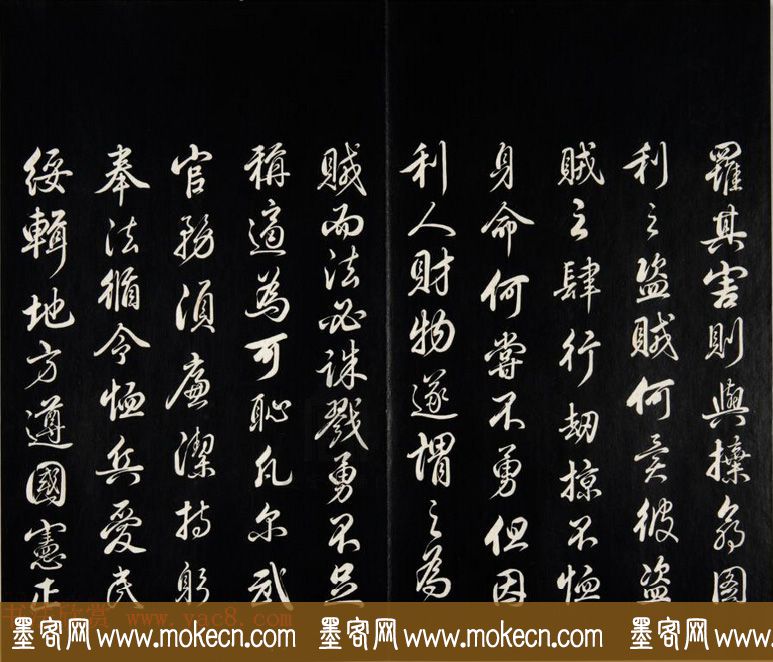 羅其害則與攘禽圖
利之盜賊何異彼盜
賊之肆行劫掠不恤
身命何嘗不勇但因
利人財物遂謂之為
賊而法必誅戮勇不足
稱適為可恥凡尔武
官務須廉潔持躬
奉法循令恤兵愛民
綏輯地方遵國憲止
书法欣赏 www.yac8.com
墨客网 www.mokecn.com 墨客网 www.mokecn.com 墨客网 www